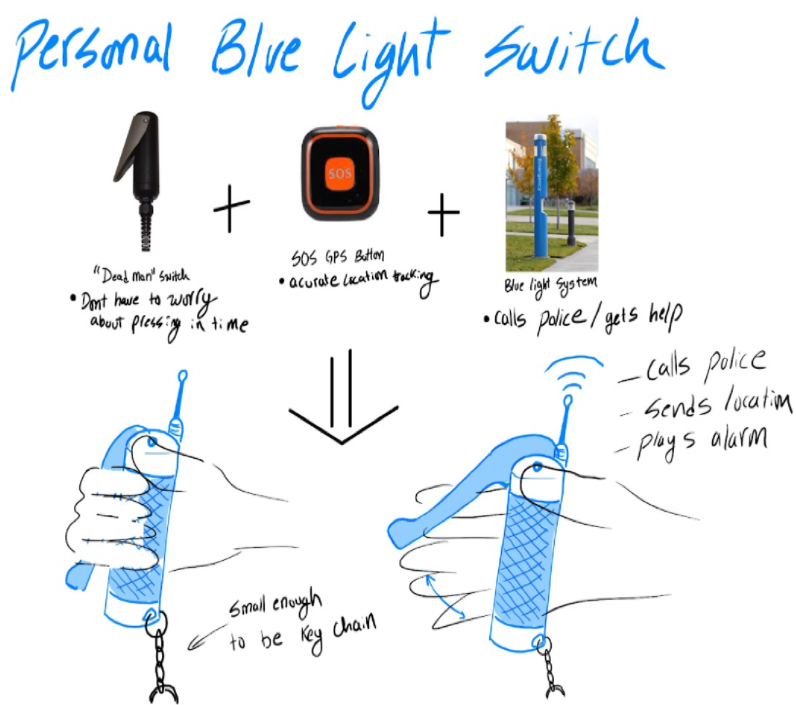 Personal Blue Light Switch
SOS
"Dead man" Switch
• Dont have to worry
about pressing in time
SOS GPS Button
• acurate location tracking
Blue light System
• Calls Police / gets help
– Calls police
– Sends location
– plays alarm
Small enough
to be Key Chain